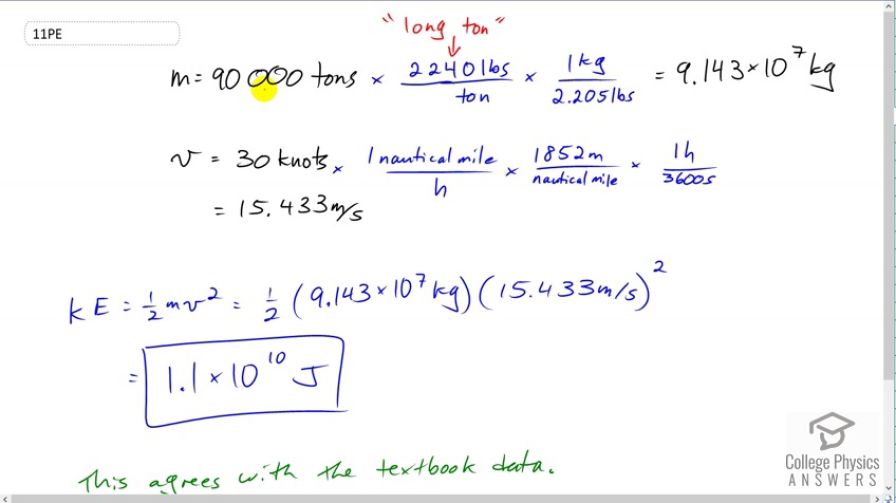 11PE
"long ton"
m = 90 000 tons × 2240 lbs / ton × 1 kg / 2.205 lbs = 9.143 × 10^7 kg
v = 30 knots × 1 nautical mile / h × 1852 m / nautical mile × 1h / 3600s
= 15.433 m/s
KE = 1/2 mv^2 = 1/2 (9.143 × 10^7 kg)(15.433 m/s)^2
= 1.1 × 10^10 J
This agrees with the textbook data.
College Physics
ANSWERS